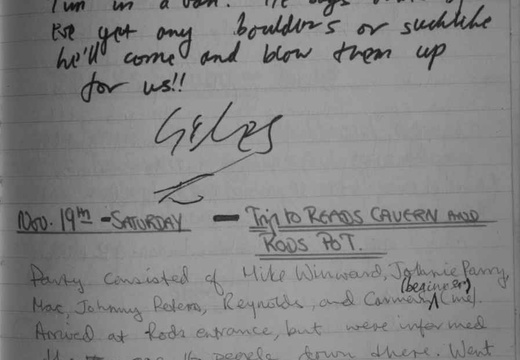 I'm in a
I've get any boulders or suchlike
he'll come and blow them up
for us!!
Giles
Nov. 19th - SATURDAY - Trip to READS CAVERN AND
RODS POT.
Party consisted of Mike Winward, Johnnie Parry,
(beginner)
Mac, Johnny Peters, Reynolds, and Carmen (me).
Arrived at Rods entrance, but were informed
people down there. Went